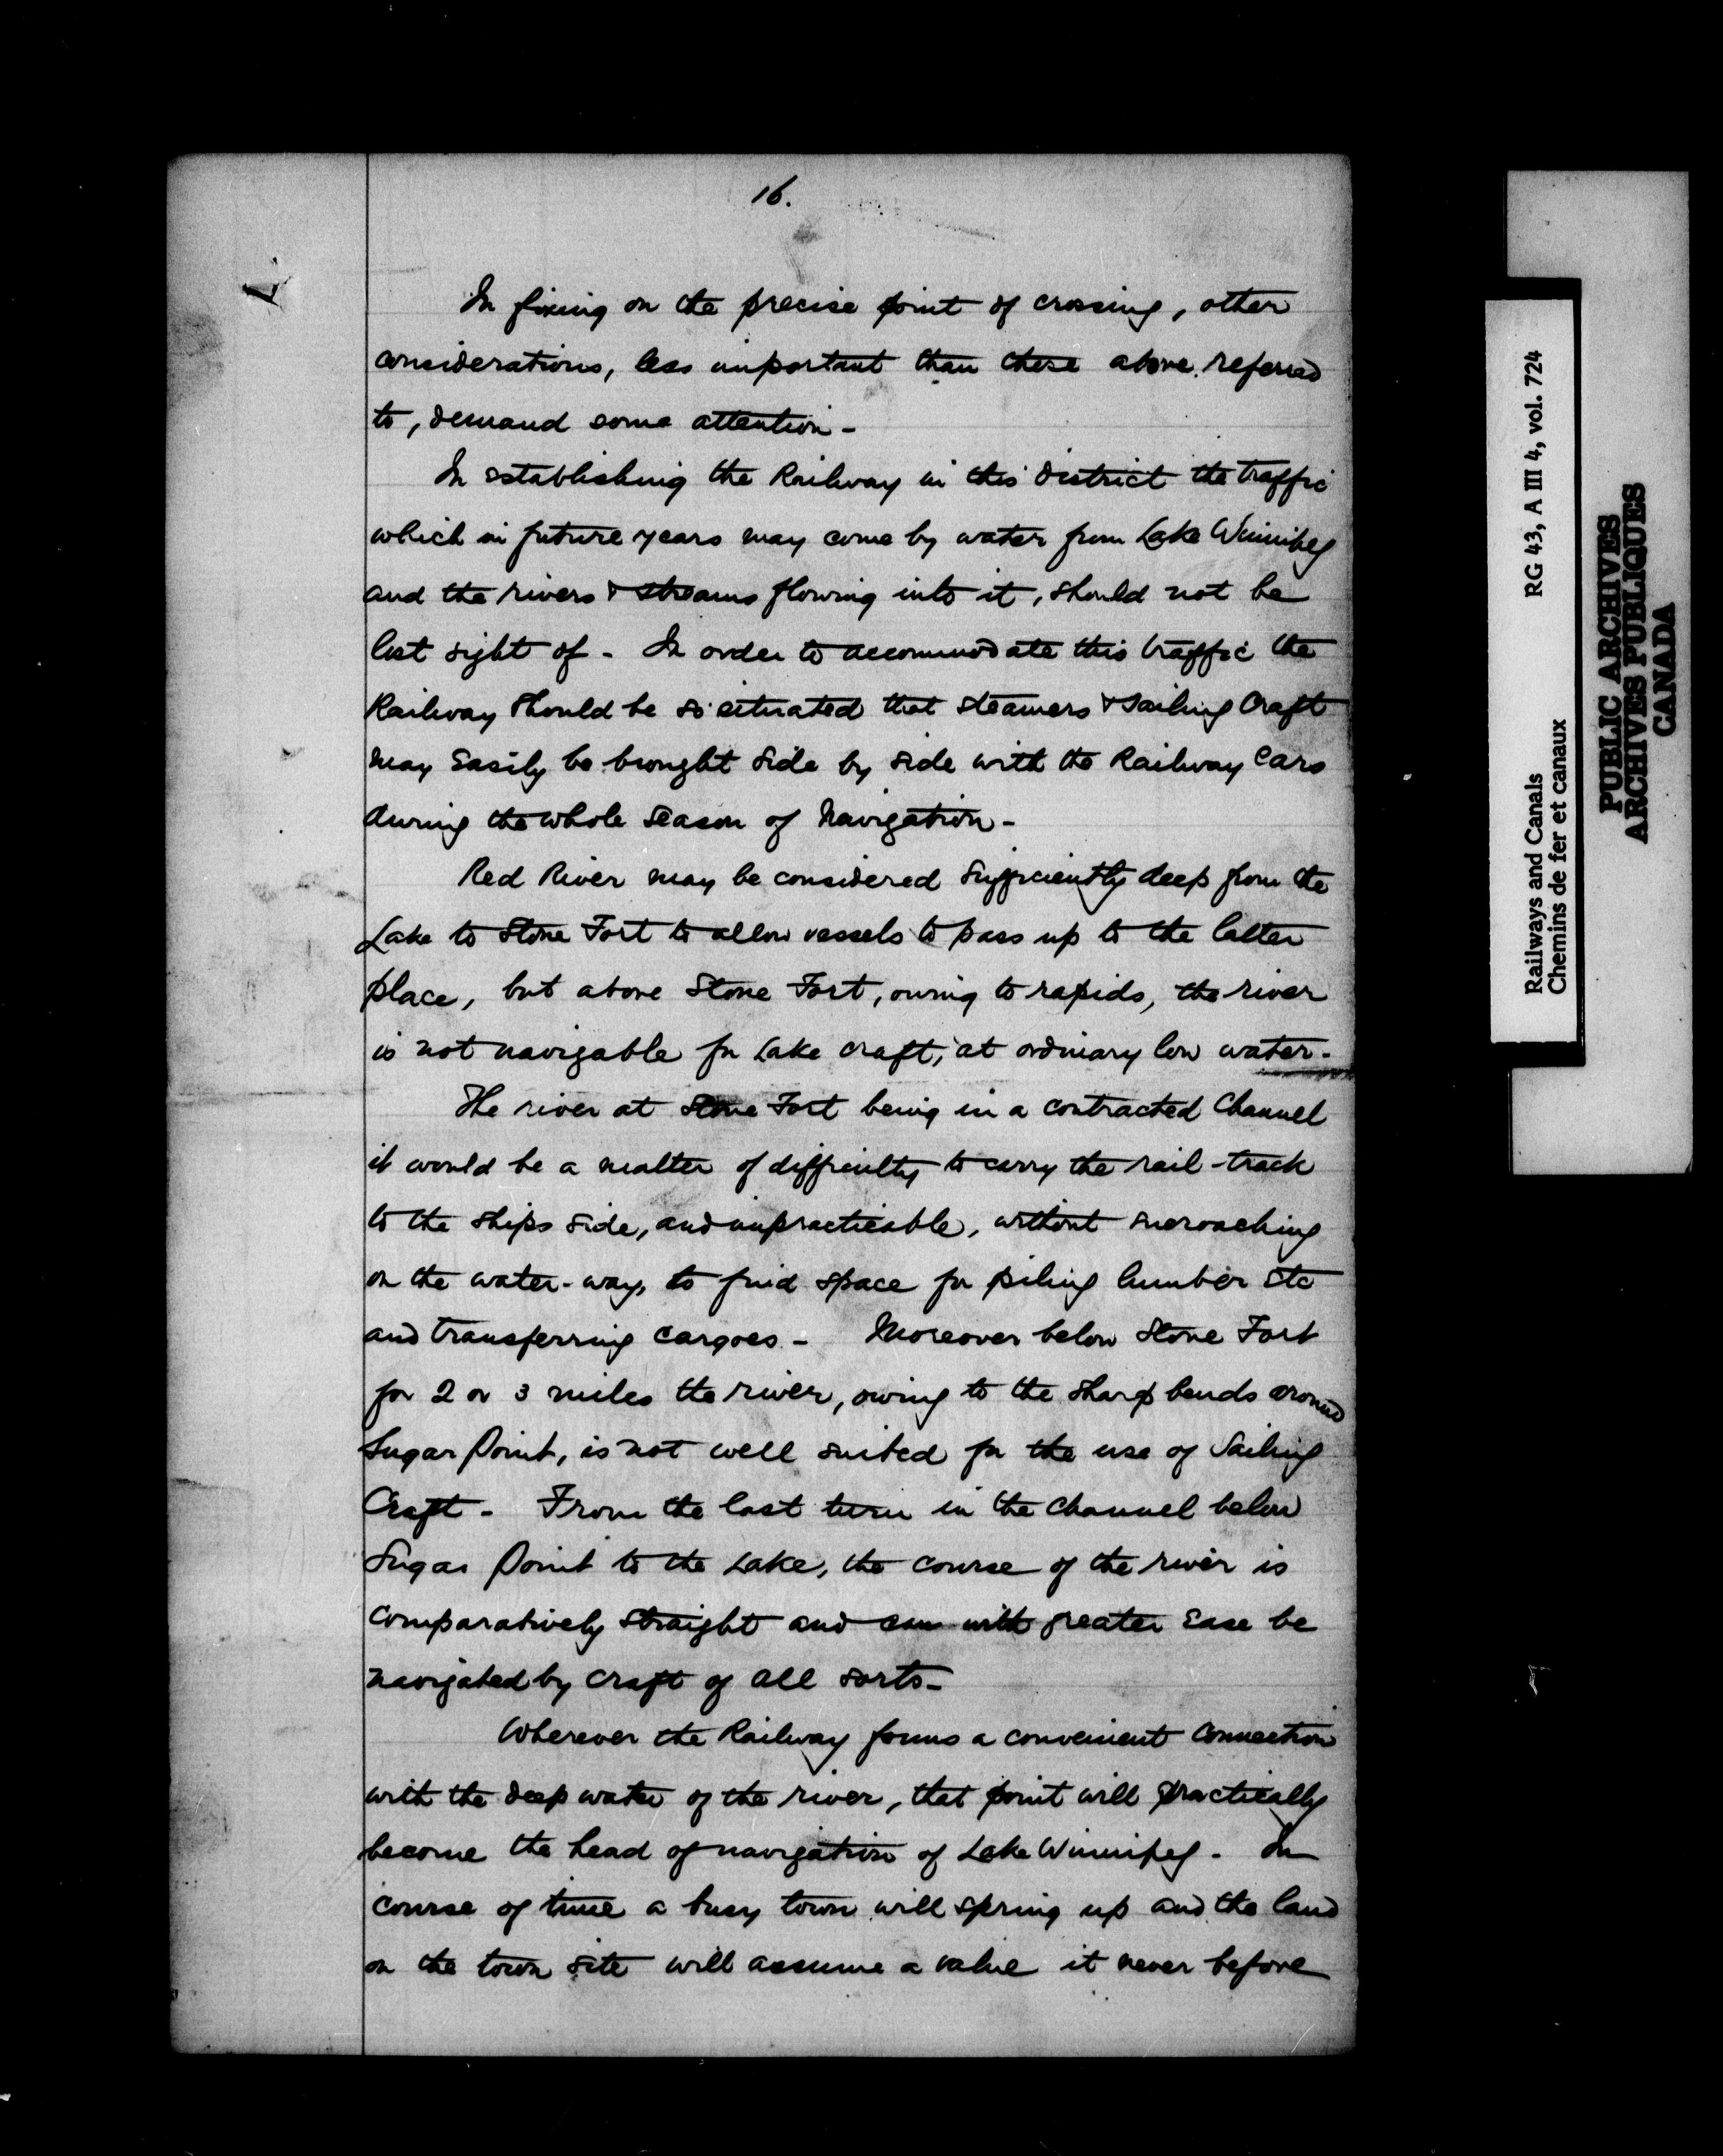 16.
In fixing on the precise point of crossing, other
considerations, less important than these above referred
to, demand some attention -
In establishing the Railway in this district the traffic
which in future years may come by water from Lake Winnipeg
and the rivers & streams flowing into it, should not be
lost sight of - In order to accommodate this traffic the
Railway should be so situated that steamers & sailing Craft
may easily be brought side by side with the Railway Cars
during the whole season of Navigation -
Red River may be considered sufficiently deep from the
Lake to Stone Fort to allow vessels to pass up to the latter
place, but above Stone Fort, owing to rapids, the river
is not navigable for Lake craft, at ordinary low water -
The river at Stone Fort being in a contracted Channel
it would be a matter of difficulty to carry the rail-track
to the ships side, and impracticable, without encroaching
on the water-way, to find space for piling lumber etc
and transferring cargoes - Moreover below Stone Fort
for 2 or 3 miles the river, owing to the sharp bends around
Sugar Point, is not well suited for the use of Sailing
Craft - From the last turn in the Channel below
Sugar Point to the Lake, the course of the river is
comparatively straight and can with greater ease be
navigated by craft of all sorts -
Wherever the Railway forms a convenient Connection
with the deep water of the river, that point will practically
become the head of navigation of Lake Winnipeg - In
course of time a busy town will spring up and the land
on the town site will assume a value it never before
Railways and Canals RG 43, A III 4, vol. 724
Chemins de fer et canaux
PUBLIC ARCHIVES
ARCHIVES PUBLIQUES
CANADA